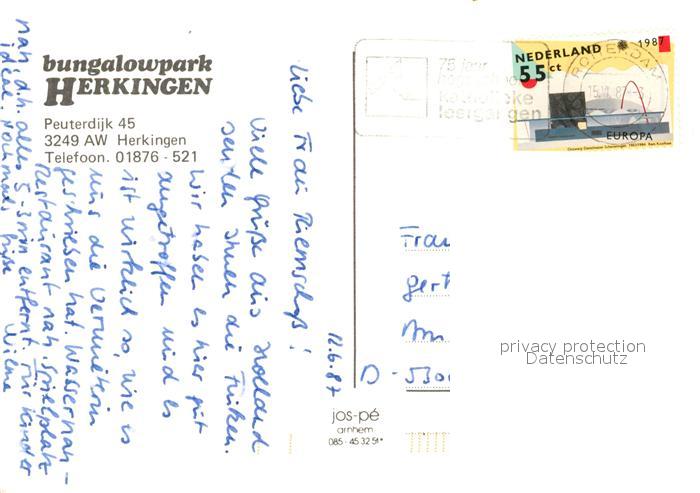 bungalowpark
HERKINGEN
Peuterdijk 45
3249 AW Herkingen
Telefoon. 01876 - 521
Liebe Frau Riemschoß!
Viele Grüße aus Holland
senden Ihnen die Funken.
Wir haben es hier gut
angetroffen und es
ist wirklich so, wie es
uns die Vermieterin
geschrieben hat. Wassernah-
Restaurant nah. Spielplatz
nah, d.h. alles 5-3 min entfernt. Für Kinder
ideal. Nochmals Grüße
Wilma
12.6.87
jos-pé
arnhem
085-45 32 51*
75 jaar
katholieke
leergangen
ROTTERDAM
NEDERLAND
1987
55 ct
EUROPA
Frau
Gert
Am
D - 5300
privacy protection
Datenschutz